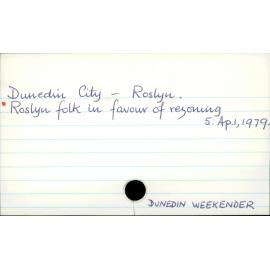 Dunedin City – Roslyn.
Roslyn folk in favour of rezoning
5. Ap.1, 1979.
DUNEDIN WEEKENDER